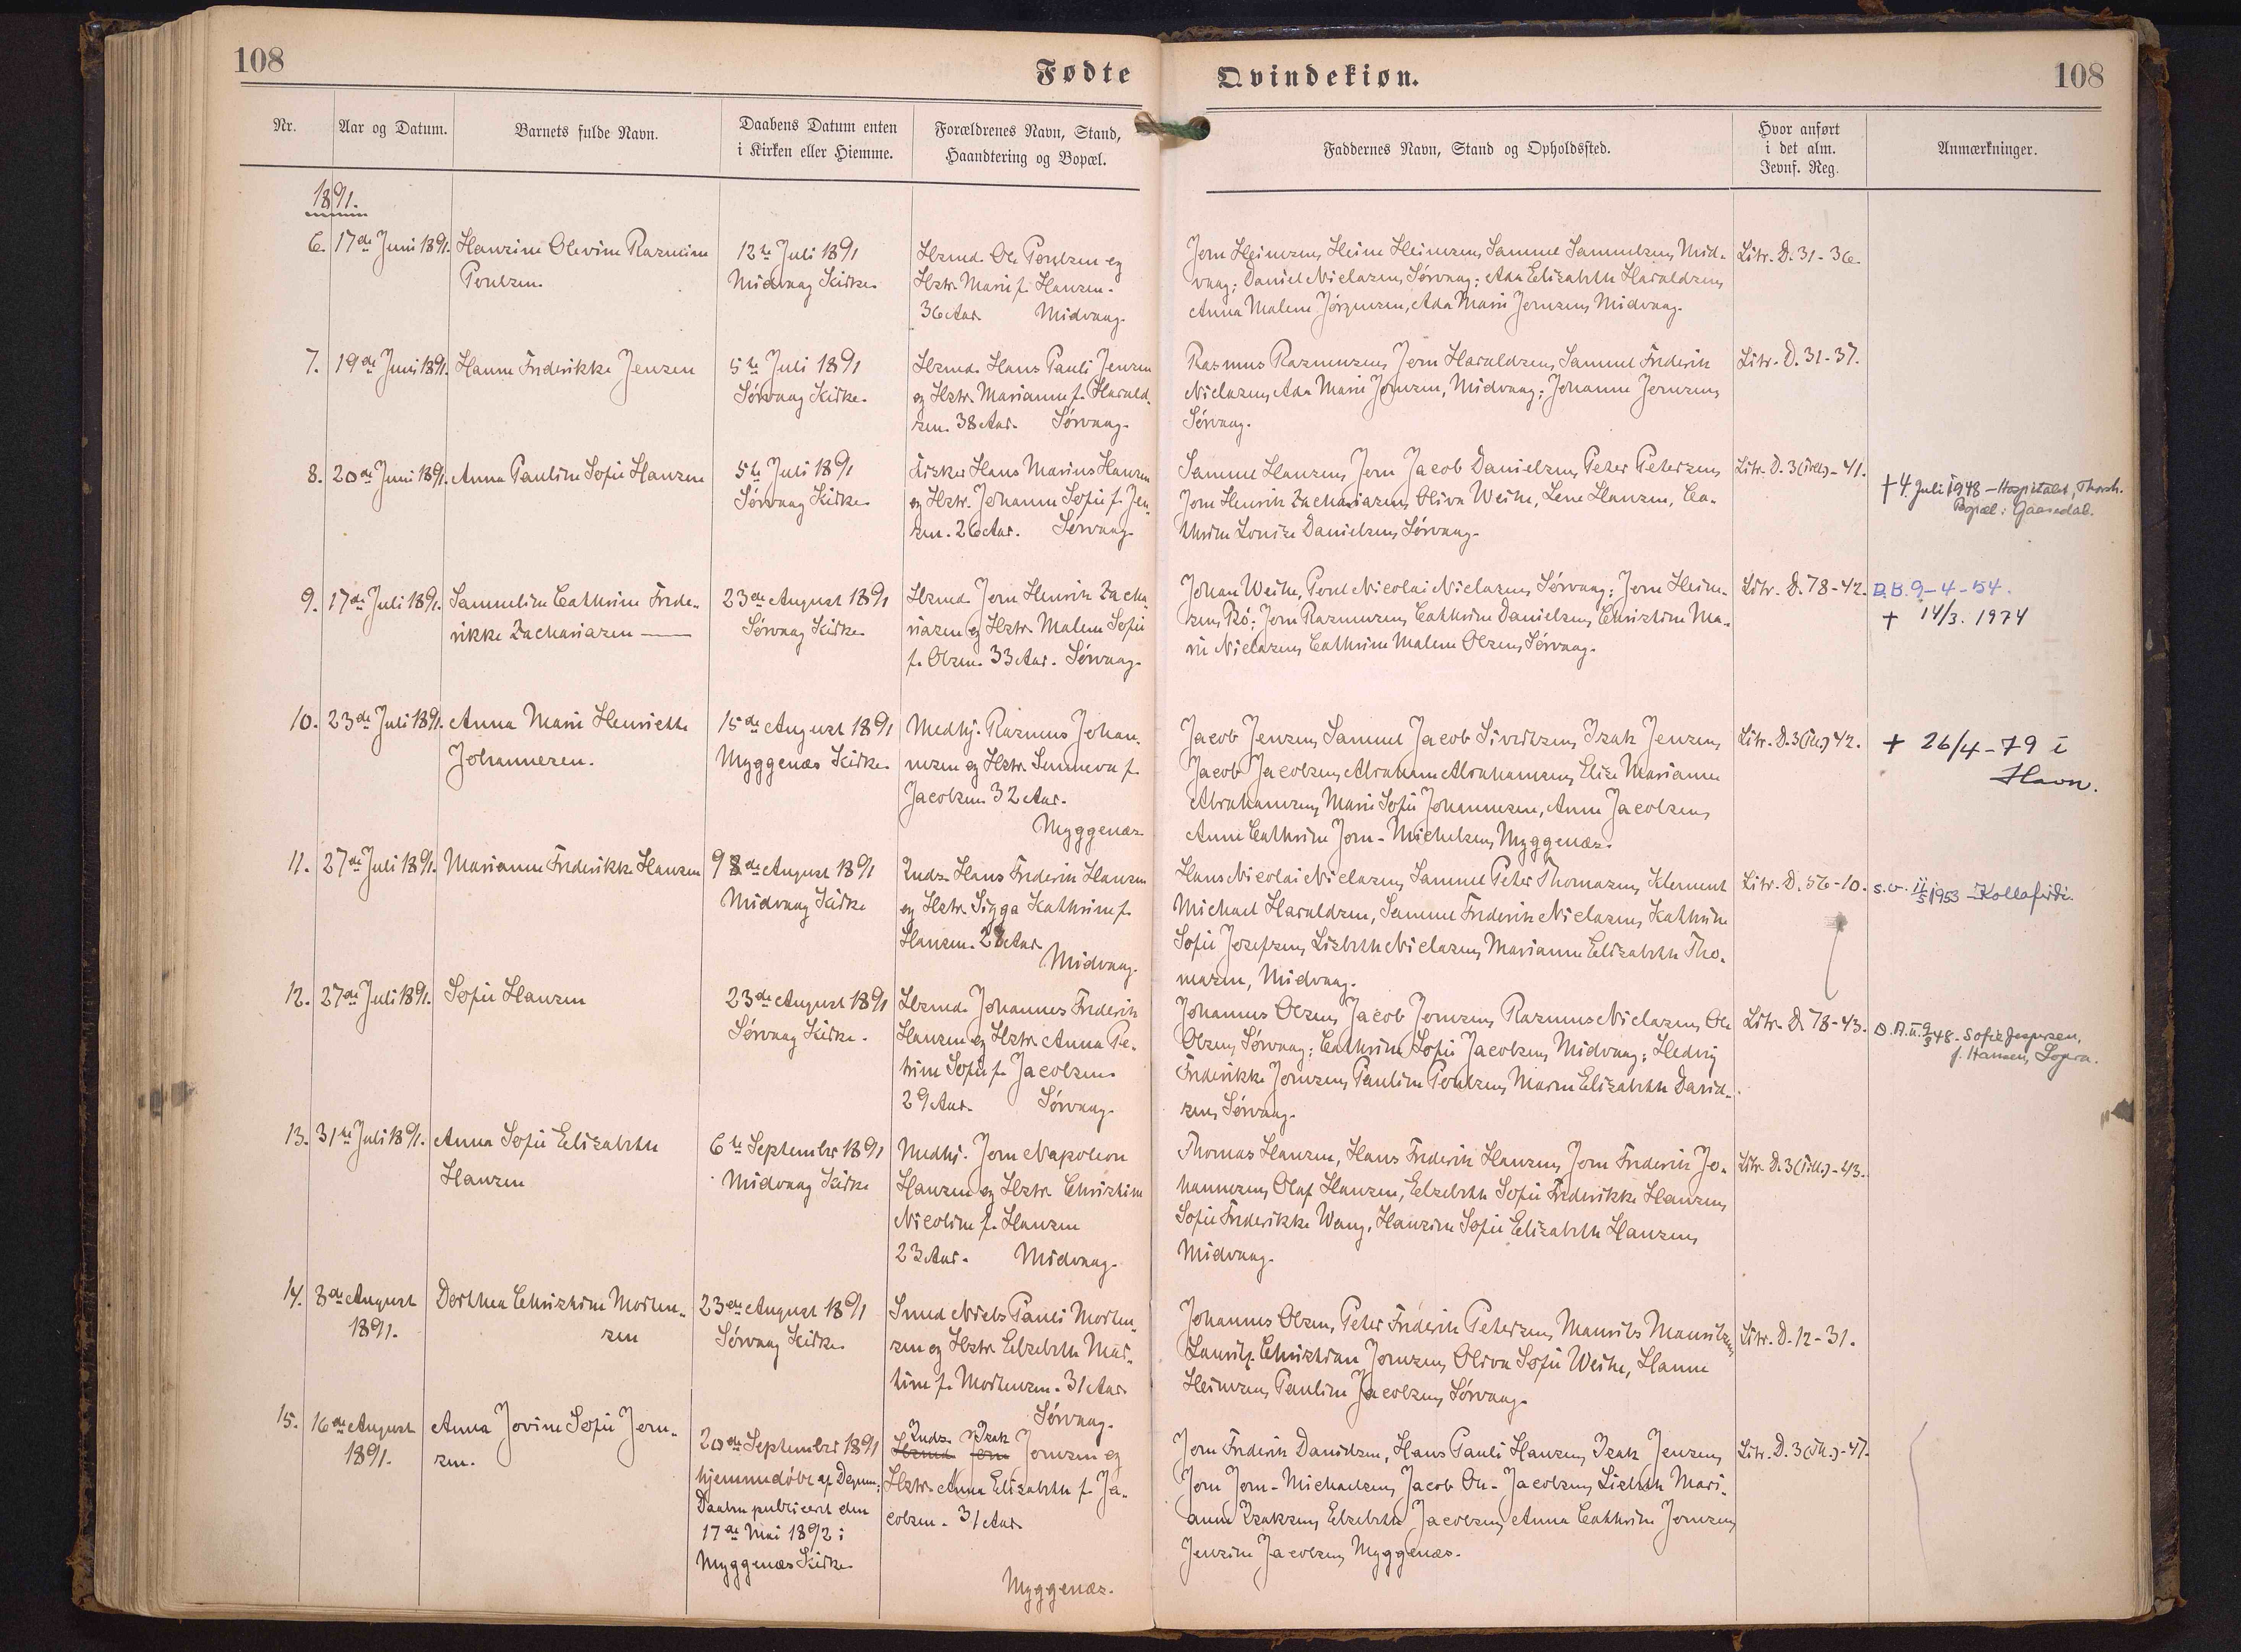 108
Fødte
Qvindekiøn.
108
Nr.
Aar og Datum.
Barnets fulde Navn.
Daabens Datum enten
i Kirken eller Hiemme.
Forældrenes Navn, Stand,
Haandtering og Bopæl.
Faddernes Navn, Stand og Opholdssted.
Hvor anført
i det alm.
Jevnf. Reg.
Anmærkninger.
1891.
6.
17de Juni 1891.
Hansine Olevine Rasmine
Poulsen.
12te Juli 1891
Midvaag Kirke.
Hsmd. Ole Poulsen og
Hstr. Marie f. Hansen.
36 Aar. Midvaag.
Jorn Heinesen, Heine Heinesen, Samuel Samuelsen, Mid-
vaag; Daniel Niclasen, Sórvaag; Ada Elisabeth Haraldsen,
Anna Malene Jórgensen, Ada Marie Jornsen, Midvaag.
Litr. D. 31-36.
7.
19de Juni 1891.
Hanne Frederikke Jensen
5te Juli 1891
Sórvaag Kirke.
Hsmd. Hans Pauli Jensen
og Hstr. Marianne f. Harald-
sen. 38 Aar. Sórvaag.
Rasmus Rasmussen, Jorn Haraldsen, Samuel Frederik
Niclasen, Ada Marie Jornsen, Midvaag; Johanne Jornsen,
Sórvaag.
Litr. D. 31-37.
8.
20de Juni 1891.
Anna Pauline Sofie Hansen
5te Juli 1891
Sórvaag Kirke.
Fisker Hans Marius Hansen
og Hstr. Johanne Sofie f. Jen-
sen. 26 Aar. Sórvaag.
Samuel Hansen, Jorn Jacob Danielsen, Peter Petersen,
Jorn Henrik Zachariasen, Oliva Weihe, Lene Hansen, Ca-
thrine Louise Danielsen, Sórvaag.
Litr. D. 3 (Till.)-41.
† 4. Juli 1948 - Hospitalet, Thorsh.
Bopæl: Gaasedal.
9.
17de Juli 1891.
Samueline Cathrine Frede-
rikke Zachariasen
23de August 1891
Sórvaag Kirke.
Hsmd. Jorn Henrik Zacha-
riasen og Hstr. Malene Sofie
f. Olsen. 33 Aar. Sórvaag.
Johan Weihe, Poul Nicolai Niclasen, Sórvaag; Jorn Heine-
sen, Bó; Jorn Rasmussen, Cathrine Danielsen, Christine Ma-
rie Niclasen, Cathrine Malene Olsen, Sórvaag.
Litr. D. 78-42.
D.B. 9-4-54.
† 14/3. 1974
10.
23de Juli 1891.
Anna Marie Henriette
Johannesen.
15de August 1891
Myggenæs Kirke.
Medhj. Rasmus Johan-
nesen og Hstr. Sunneva f.
Jacobsen. 32 Aar.
Myggenæs.
Jacob Jensen, Samuel Jacob Sivertsen, Isak Jensen,
Jacob Jacobsen, Abraham Abrahamsen, Elise Marianne
Abrahamsen, Marie Sofie Johannesen, Anne Jacobsen,
Anne Cathrine Jorn-Michelsen, Myggenæs.
Litr. D. 3 (Till.) 42.
† 26/4-79 i
Havn.
11.
27de Juli 1891.
Marianne Frederikke Hansen
9de August 1891
Midvaag Kirke
Inds. Hans Frederik Hansen
og Hstr. Sigga Kathrine f.
Hansen. Aar
Midvaag.
Hans Nicolai Niclasen, Samuel Peter Thomasen, Klement
Michael Haraldsen, Samuel Frederik Niclasen, Kathrine
Sofie Josefsen, Lisbeth Niclasen, Marianne Elisabeth Tho-
masen, Midvaag.
Litr. D. 56-10.
s.v. 11/5 1953 - Kollafirdi.
12.
27de Juli 1891.
Sofie Hansen
23de August 1891
Sórvaag Kirke.
Hsmd. Johannes Frederik
Hansen og Hstr. Anna Pe-
trine Sofie f. Jacobsen.
29 Aar. Sórvaag.
Johannes Olsen, Jacob Jornsen, Rasmus Niclasen, Ole
Olsen, Sórvaag; Cathrine Sofie Jacobsen, Midvaag; Hedvig
Frederikke Jornsen, Pauline Poulsen, Maren Elisabeth David-
sen, Sórvaag.
Litr. D. 78-43.
D.A.u. 9/3 48. Sofie Jespersen,
f. Hansen, Sopra.
13.
31te Juli 1891.
Anna Sofie Elisabeth
Hansen
6te September 1891
Midvaag Kirke
Medhj. Jorn Napoleon
Hansen og Hstr. Christine
Nicoline f. Hansen
23 Aar. Midvaag.
Thomas Hansen, Hans Frederik Hansen, Jorn Frederik Jo-
hannesen, Olaf Hansen, Elsebeth Sofie Frederikke Hansen,
Sofie Frederikke Wang, Hansine Sofie Elisabeth Hansen,
Midvaag.
Litr. D. 3 (Till.)-43.
14.
8de August
1891.
Dorthea Christine Morten-
sen
23de August 1891
Sórvaag Kirke.
Smed Niels Pauli Morten-
sen og Hstr. Elsebeth Mar-
tine f. Mortensen. 31 Aar.
Sórvaag.
Johannes Olsen, Peter Frederik Petersen, Maurits Mauritsen,
Laurits Christian Jornsen, Oliva Sofie Weihe, Hanne
Heinesen, Pauline Jacobsen, Sórvaag.
Litr. D. 12-31.
15.
16de August
1891.
Anna Jovine Sofie Jorn-
sen.
20de September 1891
hjemmedóbt af Degnen;
Daaben publiceret den
17de Mai 1892 i
Myggenæs Kirke.
Inds. Isak
Hsmd. Jorn Jornsen og
Hstr. Anne Elisabeth f. Ja-
cobsen. 31 Aar.
Myggenæs.
Jorn Frederik Davidsen, Hans Pauli Hansen, Isak Jensen,
Jorn Jorn-Michaelsen, Jacob Ole-Jacobsen, Lisbeth Mari-
anne Isaksen, Elsebeth Jacobsen, Anna Cathrine Jornsen,
Jensine Jacobsen, Myggenæs.
Litr. D. 3 (Till.)-47.